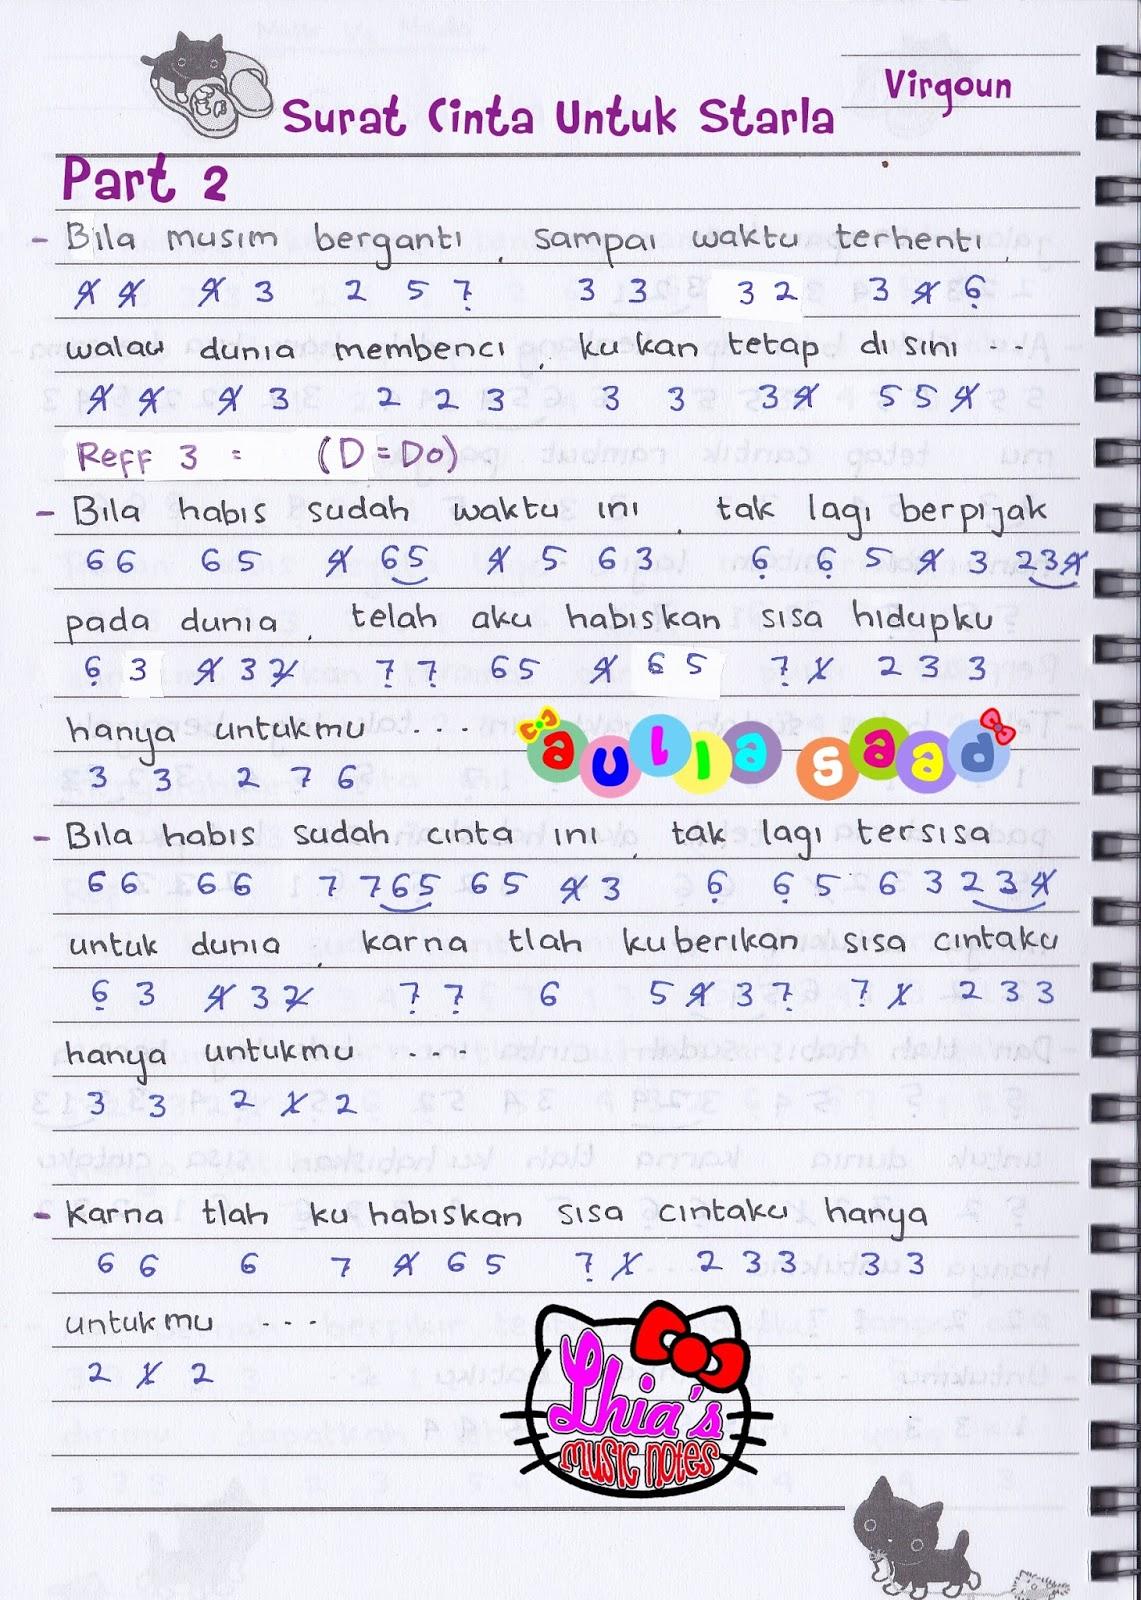 Virgoun
Surat Cinta Untuk Starla
Part 2
- Bila musim berganti, sampai waktu terhenti,
4̸ 4̸ 4̸ 3 2 5 7̣ 3 3 3 2 3 4̸ 6̣
walau dunia membenci, ku kan tetap di sini ...
4̸ 4̸ 4̸ 3 2 2 3 3 3 3 4̸ 5 5 4̸
Reff 3 = (D=Do)
- Bila habis sudah waktu ini, tak lagi berpijak
6 6 6 5 4̸ 6 5 4̸ 5 6 3 6̣ 6̣ 5 4̸ 3 2 3 4̸
pada dunia, telah aku habiskan sisa hidupku
6̣ 3 4̸ 3 2̸ 7̣ 7̣ 6 5 4̸ 6 5 7̣ 1̸ 2 3 3
hanya untukmu ....
3 3 2 7 6
aulia saad
- Bila habis sudah cinta ini, tak lagi tersisa
6 6 6 6 7 7 6 5 6 5 4̸ 3 6̣ 6̣ 5 6 3 2 3 4̸
untuk dunia, karna tlah kuberikan sisa cintaku
6̣ 3 4̸ 3 2̸ 7̣ 7̣ 6 5 4̸ 3 7̣ 7̣ 1̸ 2 3 3
hanya untukmu ....
3 3 2 1̸ 2
- Karna tlah ku habiskan sisa cintaku hanya
6 6 6 7 4̸ 6 5 7̣ 1̸ 2 3 3 3 3
untukmu ...
2 1̸ 2
Lhia's
MUSIC NOTES